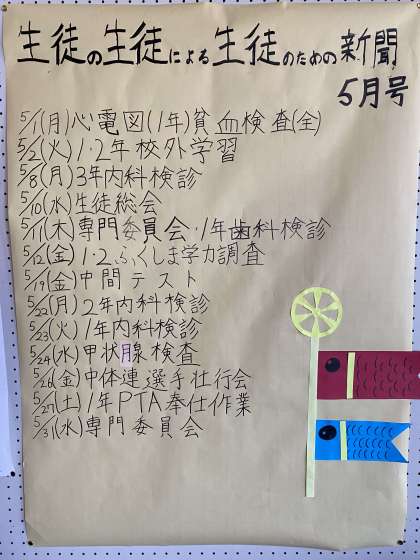 生徒の生徒による生徒のための新聞
5月号
5/1(月)心電図(1年)貧血検査(全)
5/2(火)1・2年校外学習
5/8(月)3年内科検診
5/10(水)生徒総会
5/11(木)専門委員会・1年歯科検診
5/12(金)1・2ふくしま学力調査
5/19(金)中間テスト
5/22(月)2年内科検診
5/23(火)1年内科検診
5/24(水)甲状腺検査
5/26(金)中体連選手壮行会
5/27(土)1年PTA奉仕作業
5/31(水)専門委員会